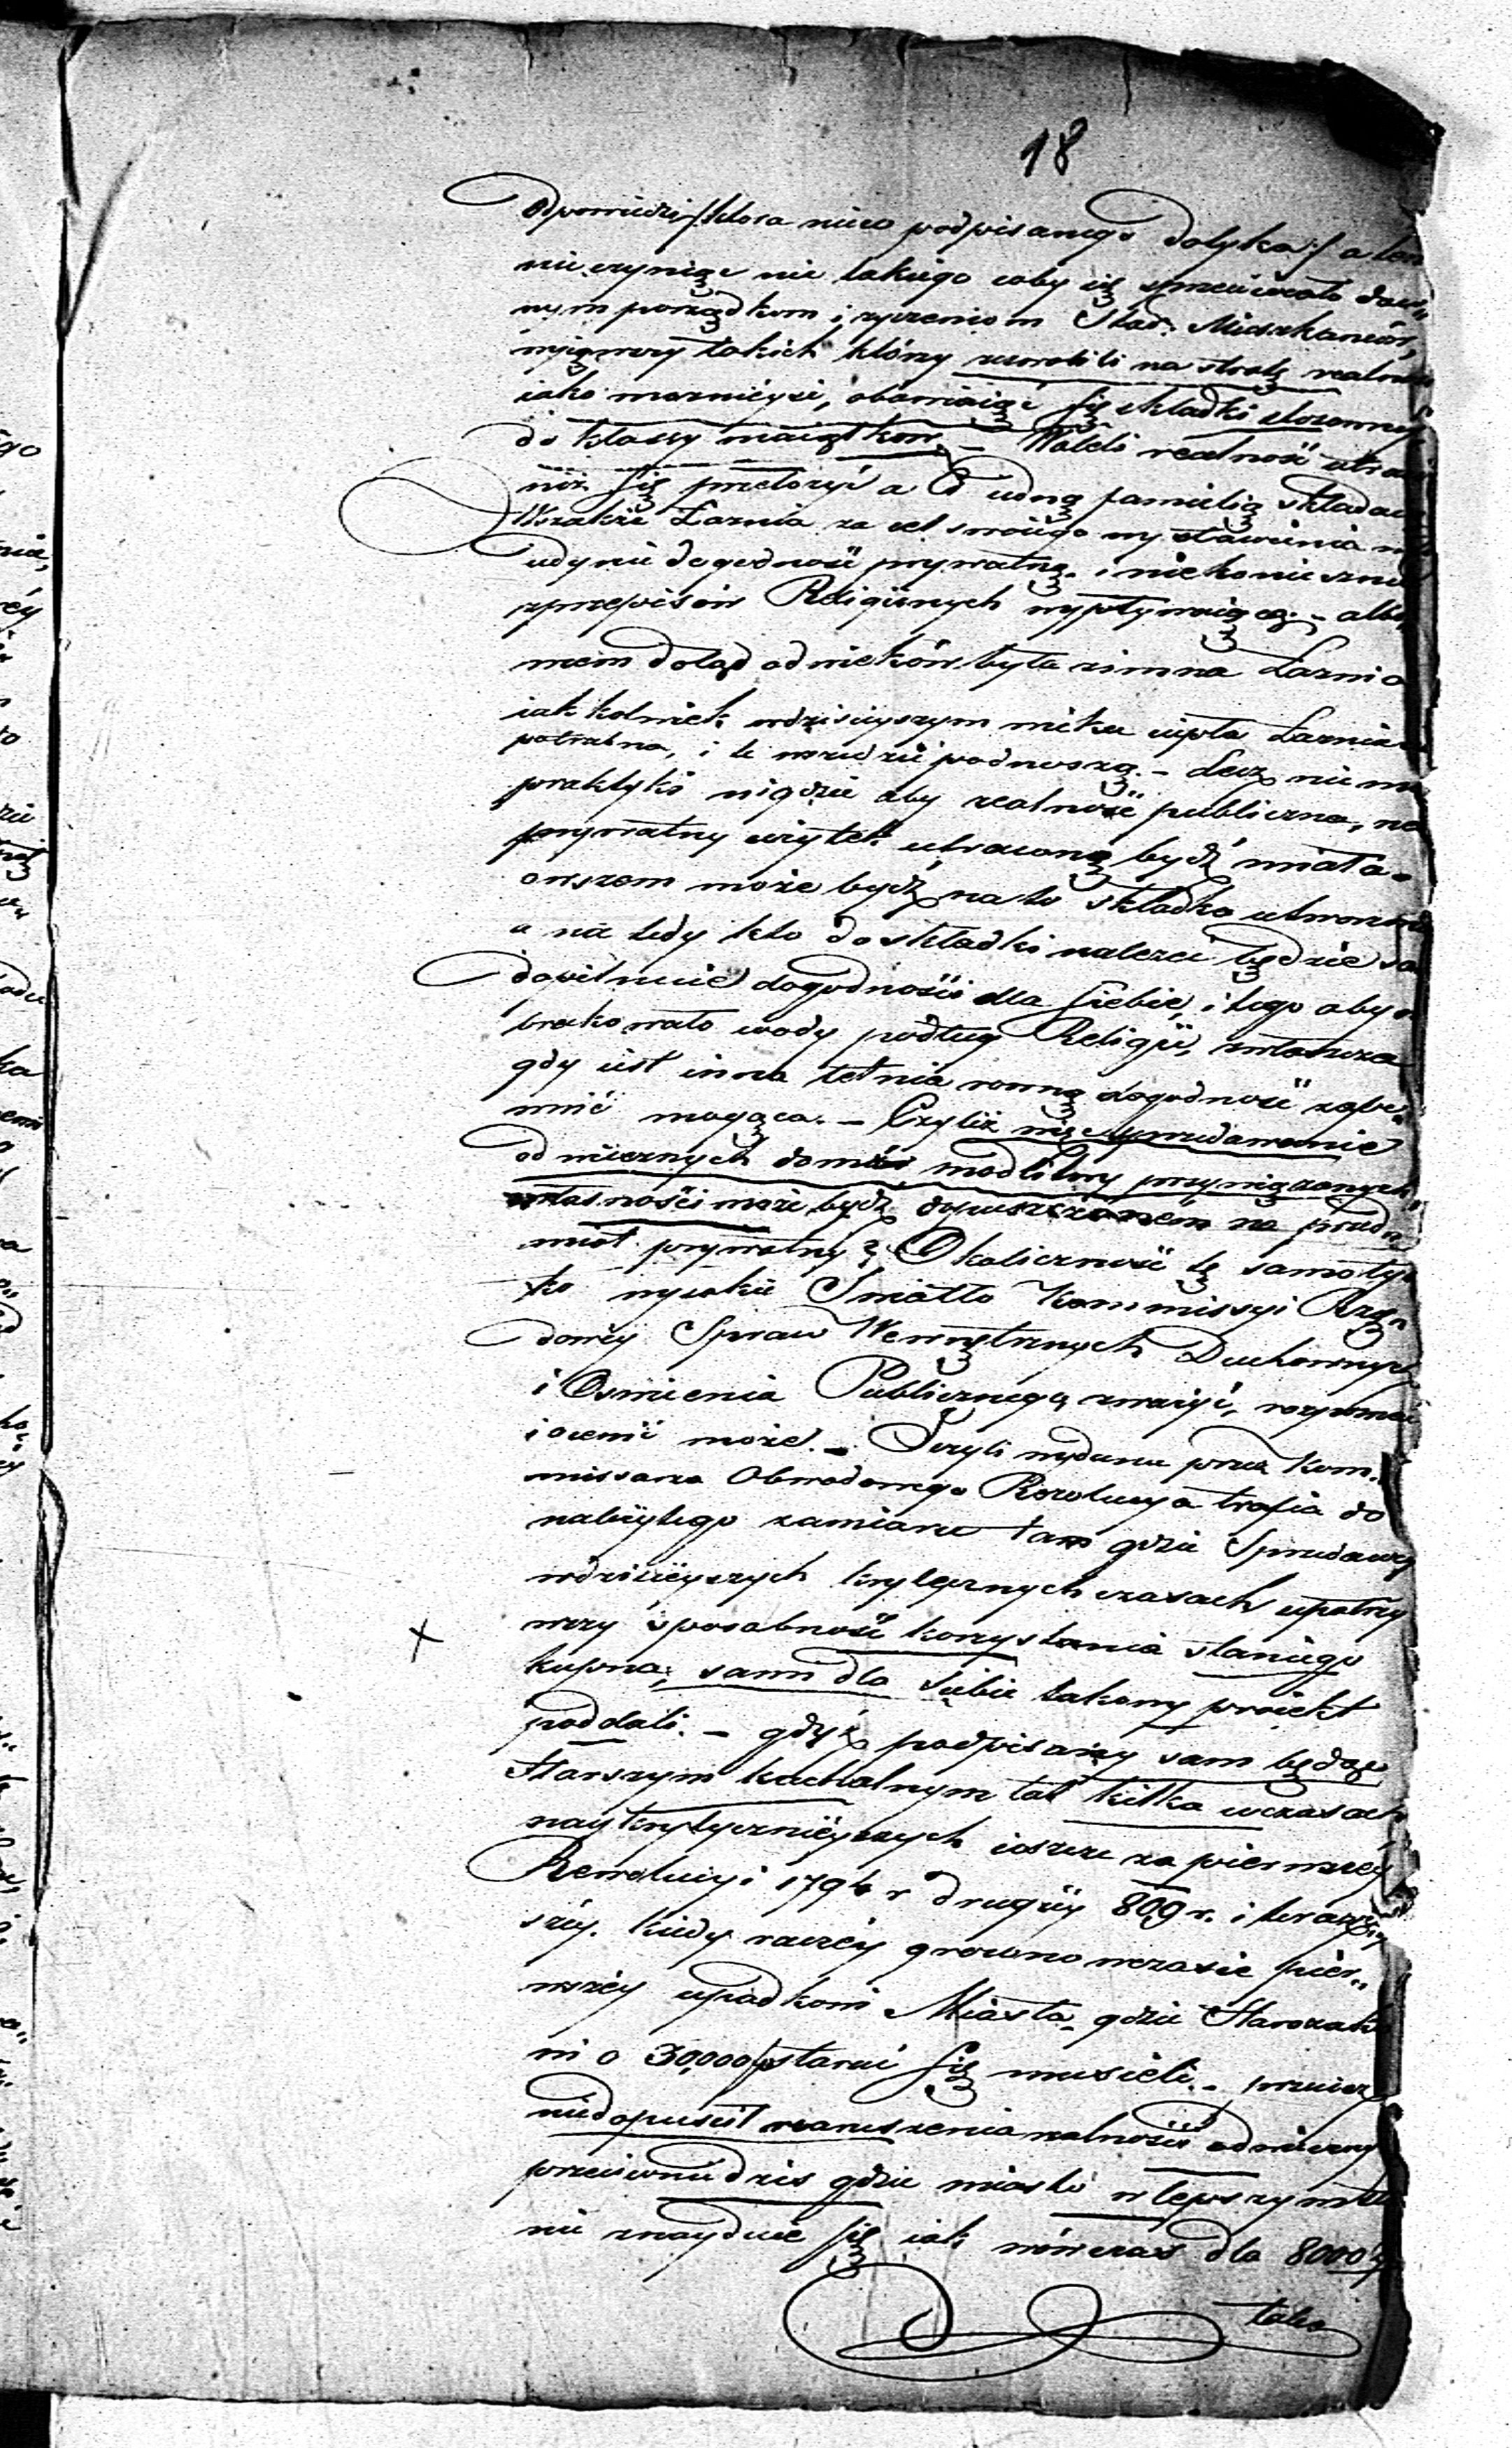 18
Odpowiedzi /:która nieco podpisanego dotyka:/ a ten
nieczyniąc nic takiego coby się sprzeciwiało daw„
nym porządkom i życzeniom Star. Mieszkańców,
wyiąwszy takich którzy zezwolili na stratę realnoś
iako możnieysi, obawiaiąc się składki stosowney
do klassy maiątków. – Woleli realność utracić
niż się przełożyć a Od iedną familią składać
Wszakże Łaznia za cel swoiego wystawienia m
iedynie dogodność prywatną. i niekoniecznie
zprzepisów Religiinych wypływaiącą; – albo
wiem dotąd odwieków była zimna Łaznia
iakkolwiek wdzisieyszym wieku ciepła Łaznia
potrzebna, i te wszędzie podnoszą. – Lecz niema
praktyki nigdzie aby realność publiczna, na
prywatny użytek utraconą bydź miała.
owszem może bydź na to składka utworzona
a nie tedy kto do składki należeć będzie sa
dopilnuie dogodności dla siebie, i tego aby n
brakowało wody podług Religii, zwłaszcza
gdy iest inna letnia rowną dogodność zape„
wnić mogąca. – Czyliż więc sprzedawanie
odwiecznych domów modlitwy przywiązanych
własności może bydź dopuszczonem na przed„
miot prywatny? Okoliczność tę samo tyl
ko wysokie Swiatło Kommissyi Rzą„
dowéy Spraw Wewnętrznych Duchownych
i Oswiecenia Publicznego zważyć, rozpoznać
i ocenić może. – Jeżyli wydana przez Kom„
missarza Obwodowego Rezolucya trafia do
należytego zamiaru tam gdzie Sprzedawcy
wdzisieyszych krytycznych czasach upatrzy
wszy sposobność korzystania staniego
kupna; sami dla siebie takowy proiekt
poddali. – gdyż podpisany sam będąc
Starszym kachalnym lat kilka wczasach
naykrytycznieyszych ieszcze za pierwszey
Rewolucyi 1794 r drugiey 809 r. i teraznie
szey. Kiedy raczéy growno wczasie pier„
wszéy upadkowi Miasta gdzie Starozako
ni o 30,000 starać się musieli. – przecież
niedopuścił naruszenia realności odwieczny
przeciwnie dziś gdzie miasto wlepszym sta
nie znayduie się iak wówczas dla 8000 z
tako